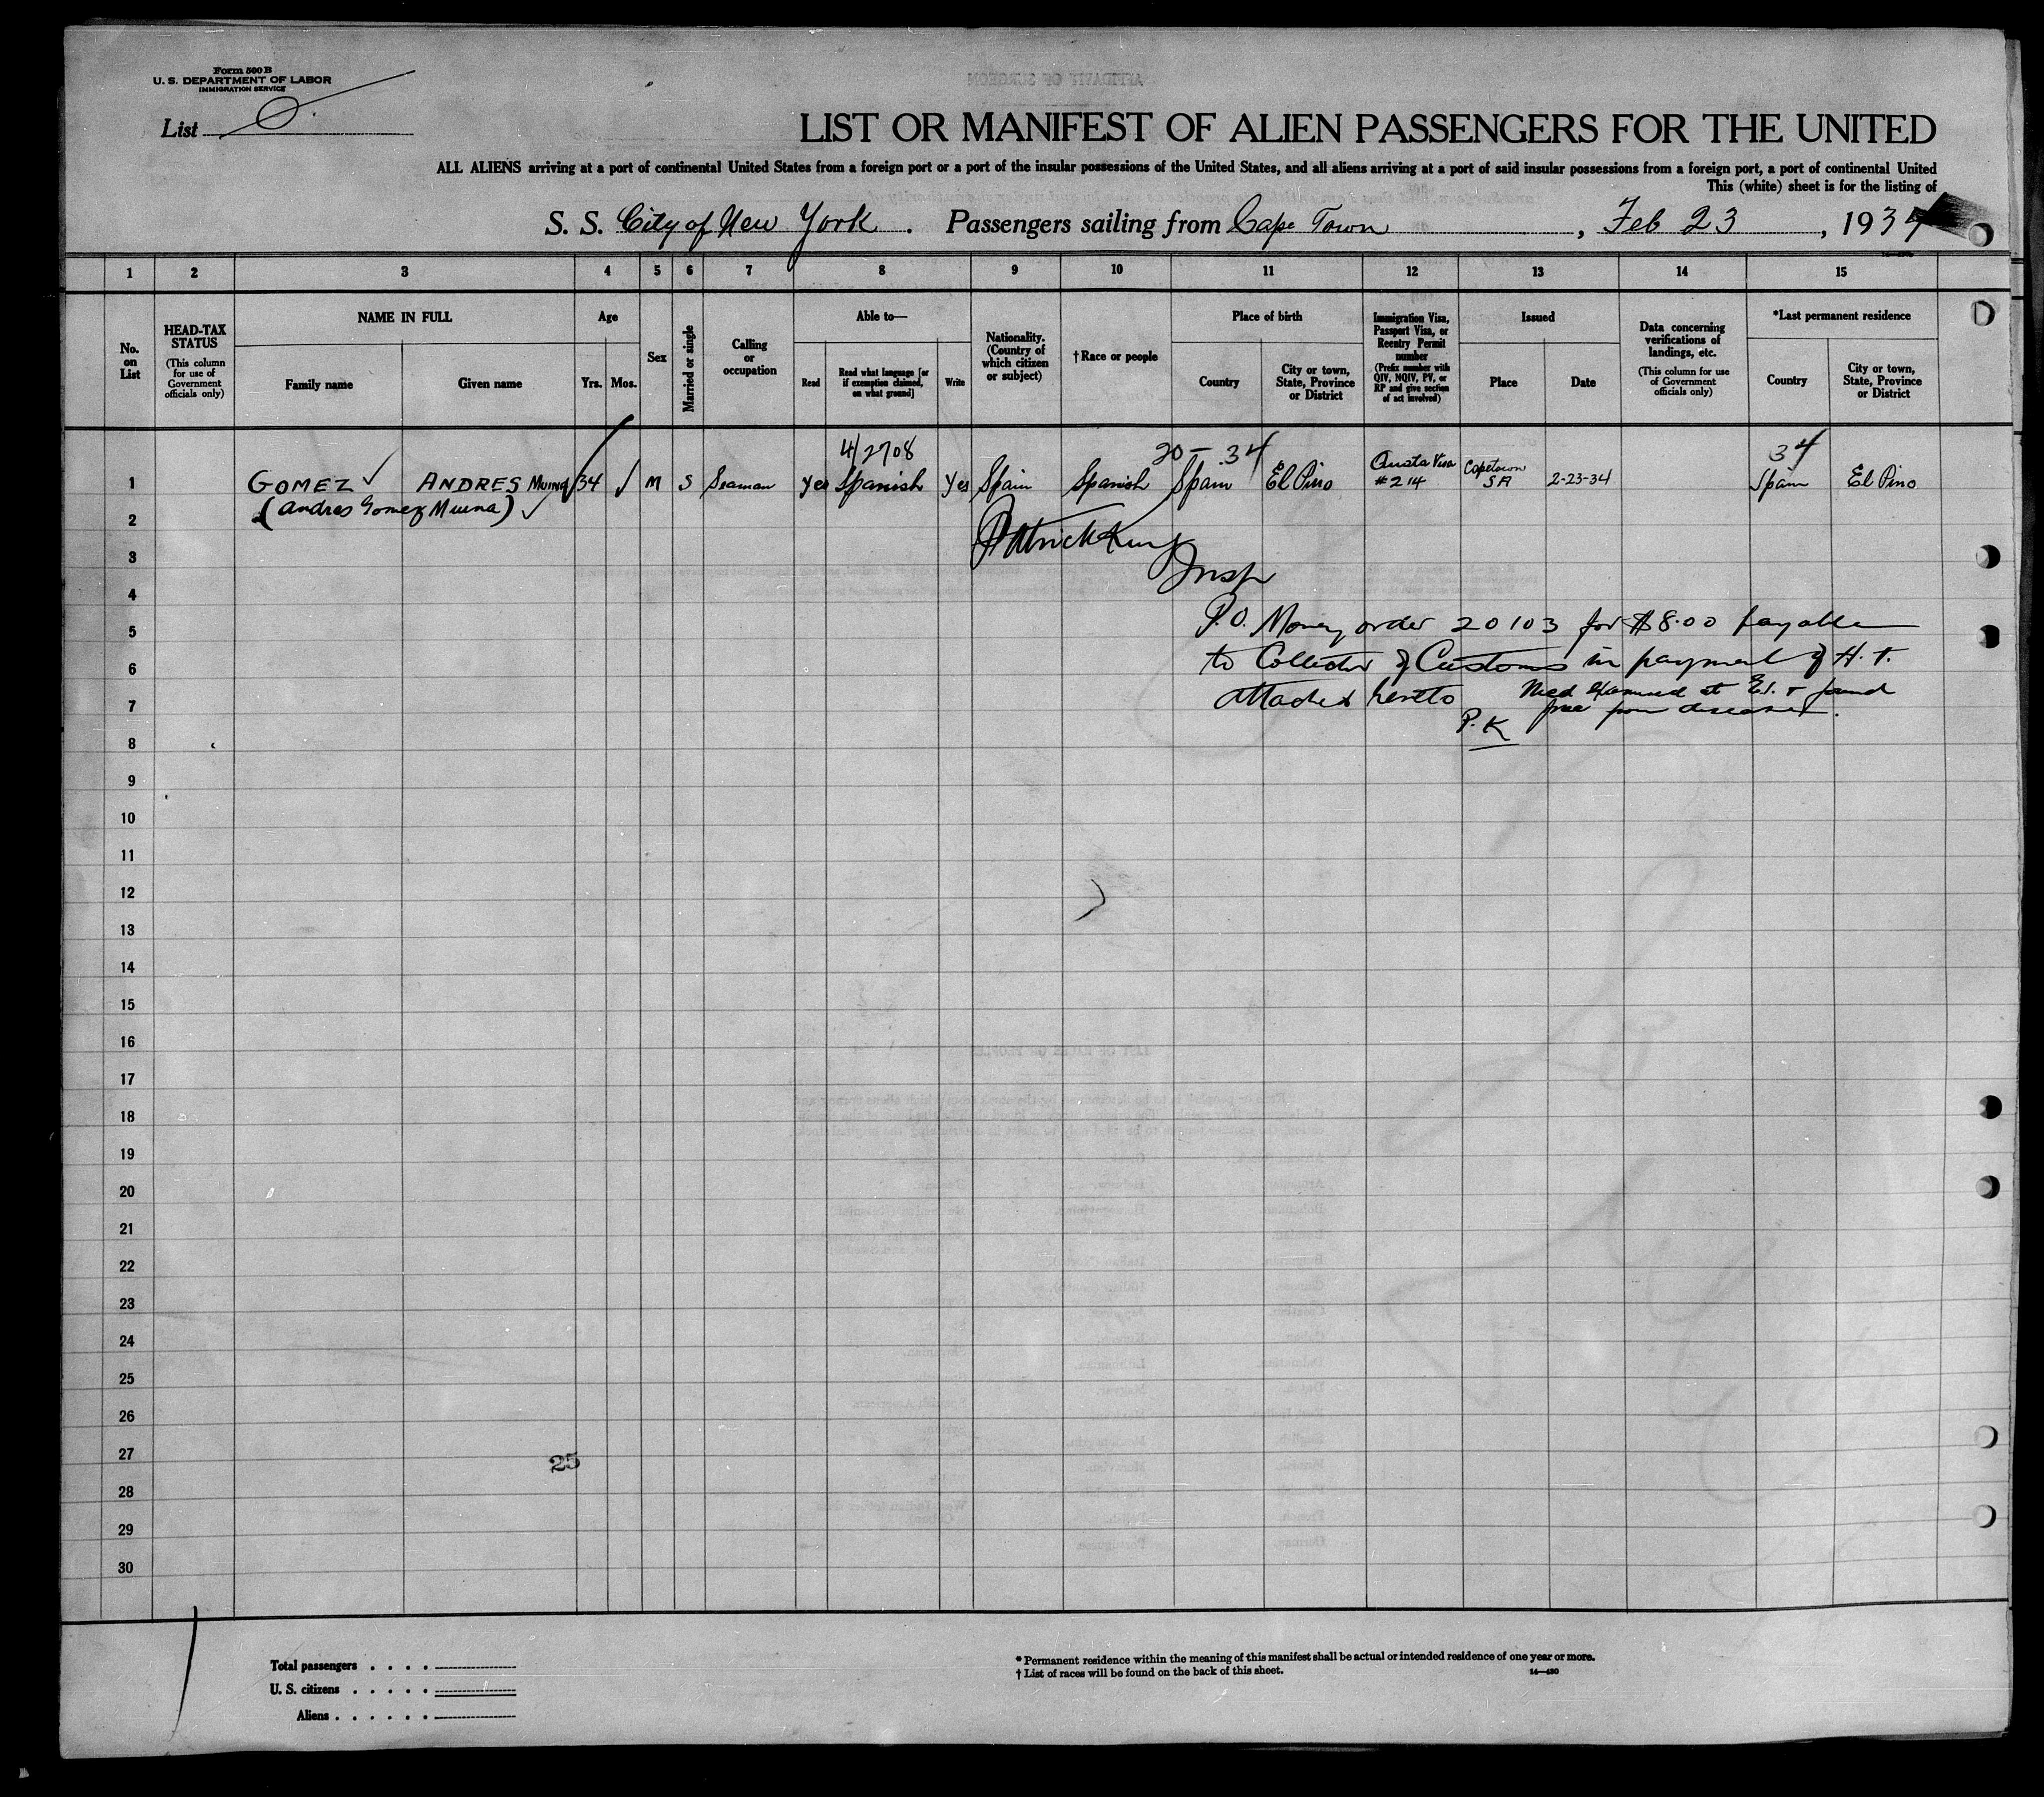 Form 500 B
U. S. DEPARTMENT OF LABOR
IMMIGRATION SERVICE
List
LIST OR MANIFEST OF ALIEN PASSENGERS FOR THE UNITED
ALL ALIENS arriving at a port of continental United States from a foreign port or a port of the insular possessions of the United States, and all aliens arriving at a port of said insular possessions from a foreign port, a port of continental United
This (white) sheet is for the listing of
S. S. City of New York. Passengers sailing from Cape Town, Feb 23, 1934
1 2 3 4 5 6 7 8 9 10 11 12 13 14 15
No. on List
HEAD-TAX STATUS (This column for use of Government officials only)
NAME IN FULL
Family name
Given name
Age
Yrs. Mos.
Sex
Married or single
Calling or occupation
Able to—
Read
Read what language [or if exemption claimed, on what ground]
Write
Nationality. (Country of which citizen or subject)
†Race or people
Place of birth
Country
City or town, State, Province or District
Immigration Visa, Passport Visa, or Reentry Permit number (Prefix number with QIV, NQIV, PV, or RP and give section of act involved)
Issued
Place
Date
Data concerning verifications of landings, etc. (This column for use of Government officials only)
*Last permanent residence
Country
City or town, State, Province or District
4/2708 20-34 34
1 GOMEZ ANDRES MUINA 34 M S Seaman Yes Spanish Yes Spain Spanish Spain El Pino Quota Visa #214 Capetown SA 2-23-34 Spain El Pino
(Andres Gomez Muina)
2
Patrick King
3
Insp
4
5 P.O. Money order 20103 for $8.00 payable
6 to Collector of Customs in payment of H.T.
7 attached hereto Med examined at E.I. & found
free from disease.
P.K
8
9
10
11
12
13
14
15
16
17
18
19
20
21
22
23
24
25
26
27
25
28
29
30
Total passengers . . . .
U. S. citizens . . . . .
Aliens . . . . . .
* Permanent residence within the meaning of this manifest shall be actual or intended residence of one year or more.
† List of races will be found on the back of this sheet.
14—430